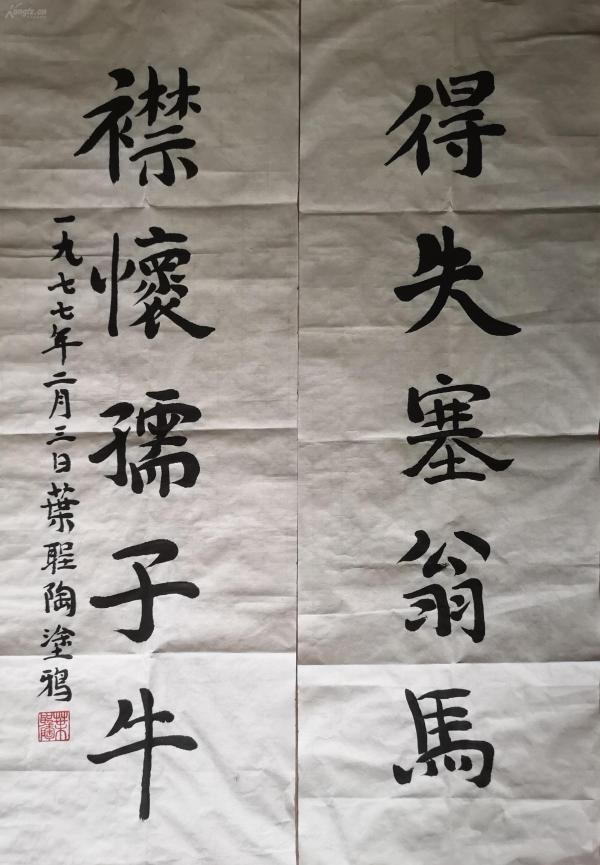 得失塞翁馬
襟懷孺子牛
一九七七年二月三日葉聖陶塗鴉